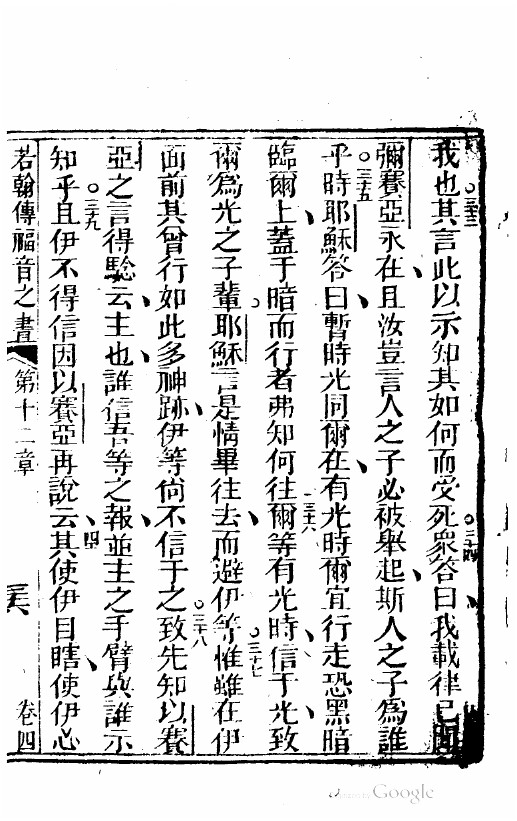 我也。三三其言此以示知其如何而受死。三四衆答曰我載律已
彌賽亞永在且汝豈言人之子必被舉起斯人之子為誰
乎。三五時耶穌答曰暫時光同爾在有光時爾宜行走恐黑暗
臨爾上蓋于暗而行者弗知何往三六爾等有光時信于光致
爾為光之子輩。耶穌言是情畢往去而避伊等。三七惟雖在伊
面前其曾行如此多神跡伊等尙不信于之。三八致先知以賽
亞之言得騐云主也誰信吾等之報並主之手臂與誰示
知乎。三九且伊不得信因以賽亞再說云四其使伊目瞎使伊心
若翰傳福音之書 第十二章 卷四
Google